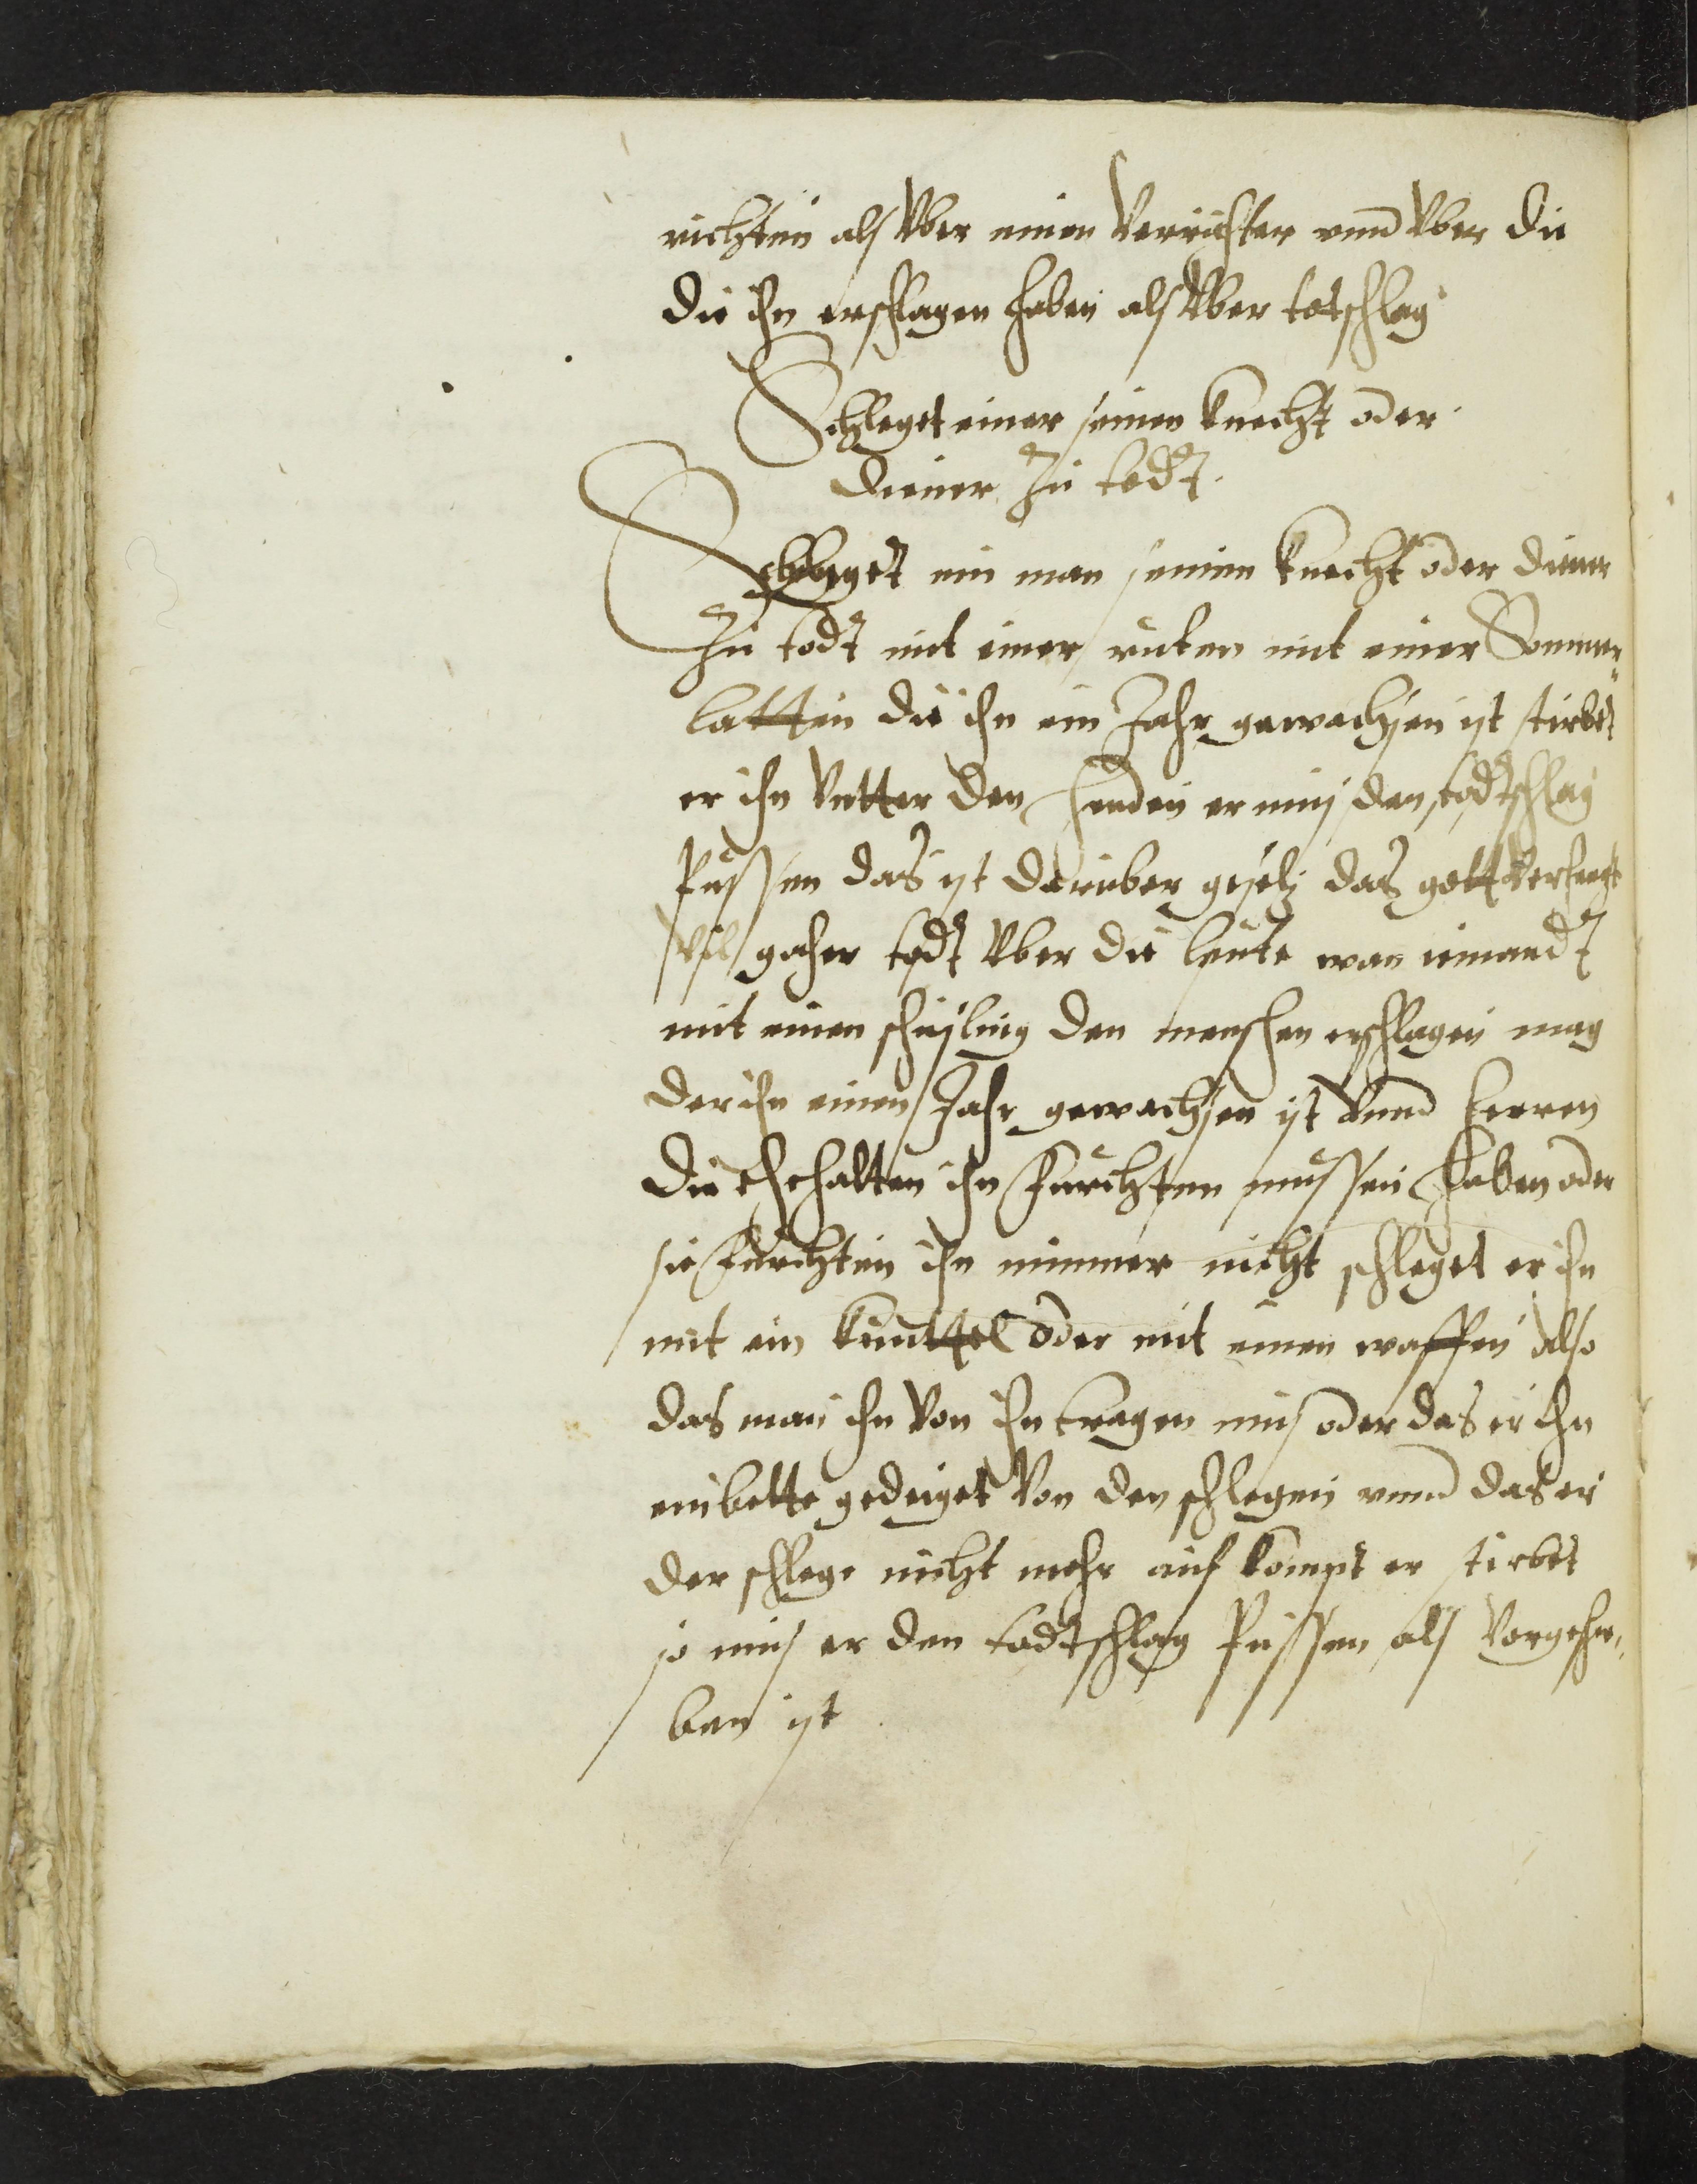 richten als Vber einen Verrichter vnnd Vber die
die ihn erschlagen haben als Vber totschlag
Schleget einer seinen knecht oder
diener zu todt.
Schleget ein man seinen knecht oder diener
zu todt mit einer ruten mit einer Sommer„
latten die ihn ein Jahr gewachsen ist stirbet
er ihn Vntter den henden er mus den todtschlag
pussen das ist daruber gesetz das gott verhengt
Vil gaher todt Vber die leute wan iemandt
mit einen schusling den menschen erschlagen mag
der ihn einen Jahr gewachsen ist Vnnd herren
die ehehalten ihn furchten mussen haben oder
sie furchten ihn nimmer nicht schleget er ihn
mit ein knuttel oder mit einen waffen also
das man ihn Von ihn tragen mus oder das er ihn
ein bette gedeiget Von den schlegen vnnd das er
der schlege nicht mehr auf kompt er stirbet
so mus er den todtschlag pussen als Vorgeschri„
ben ist